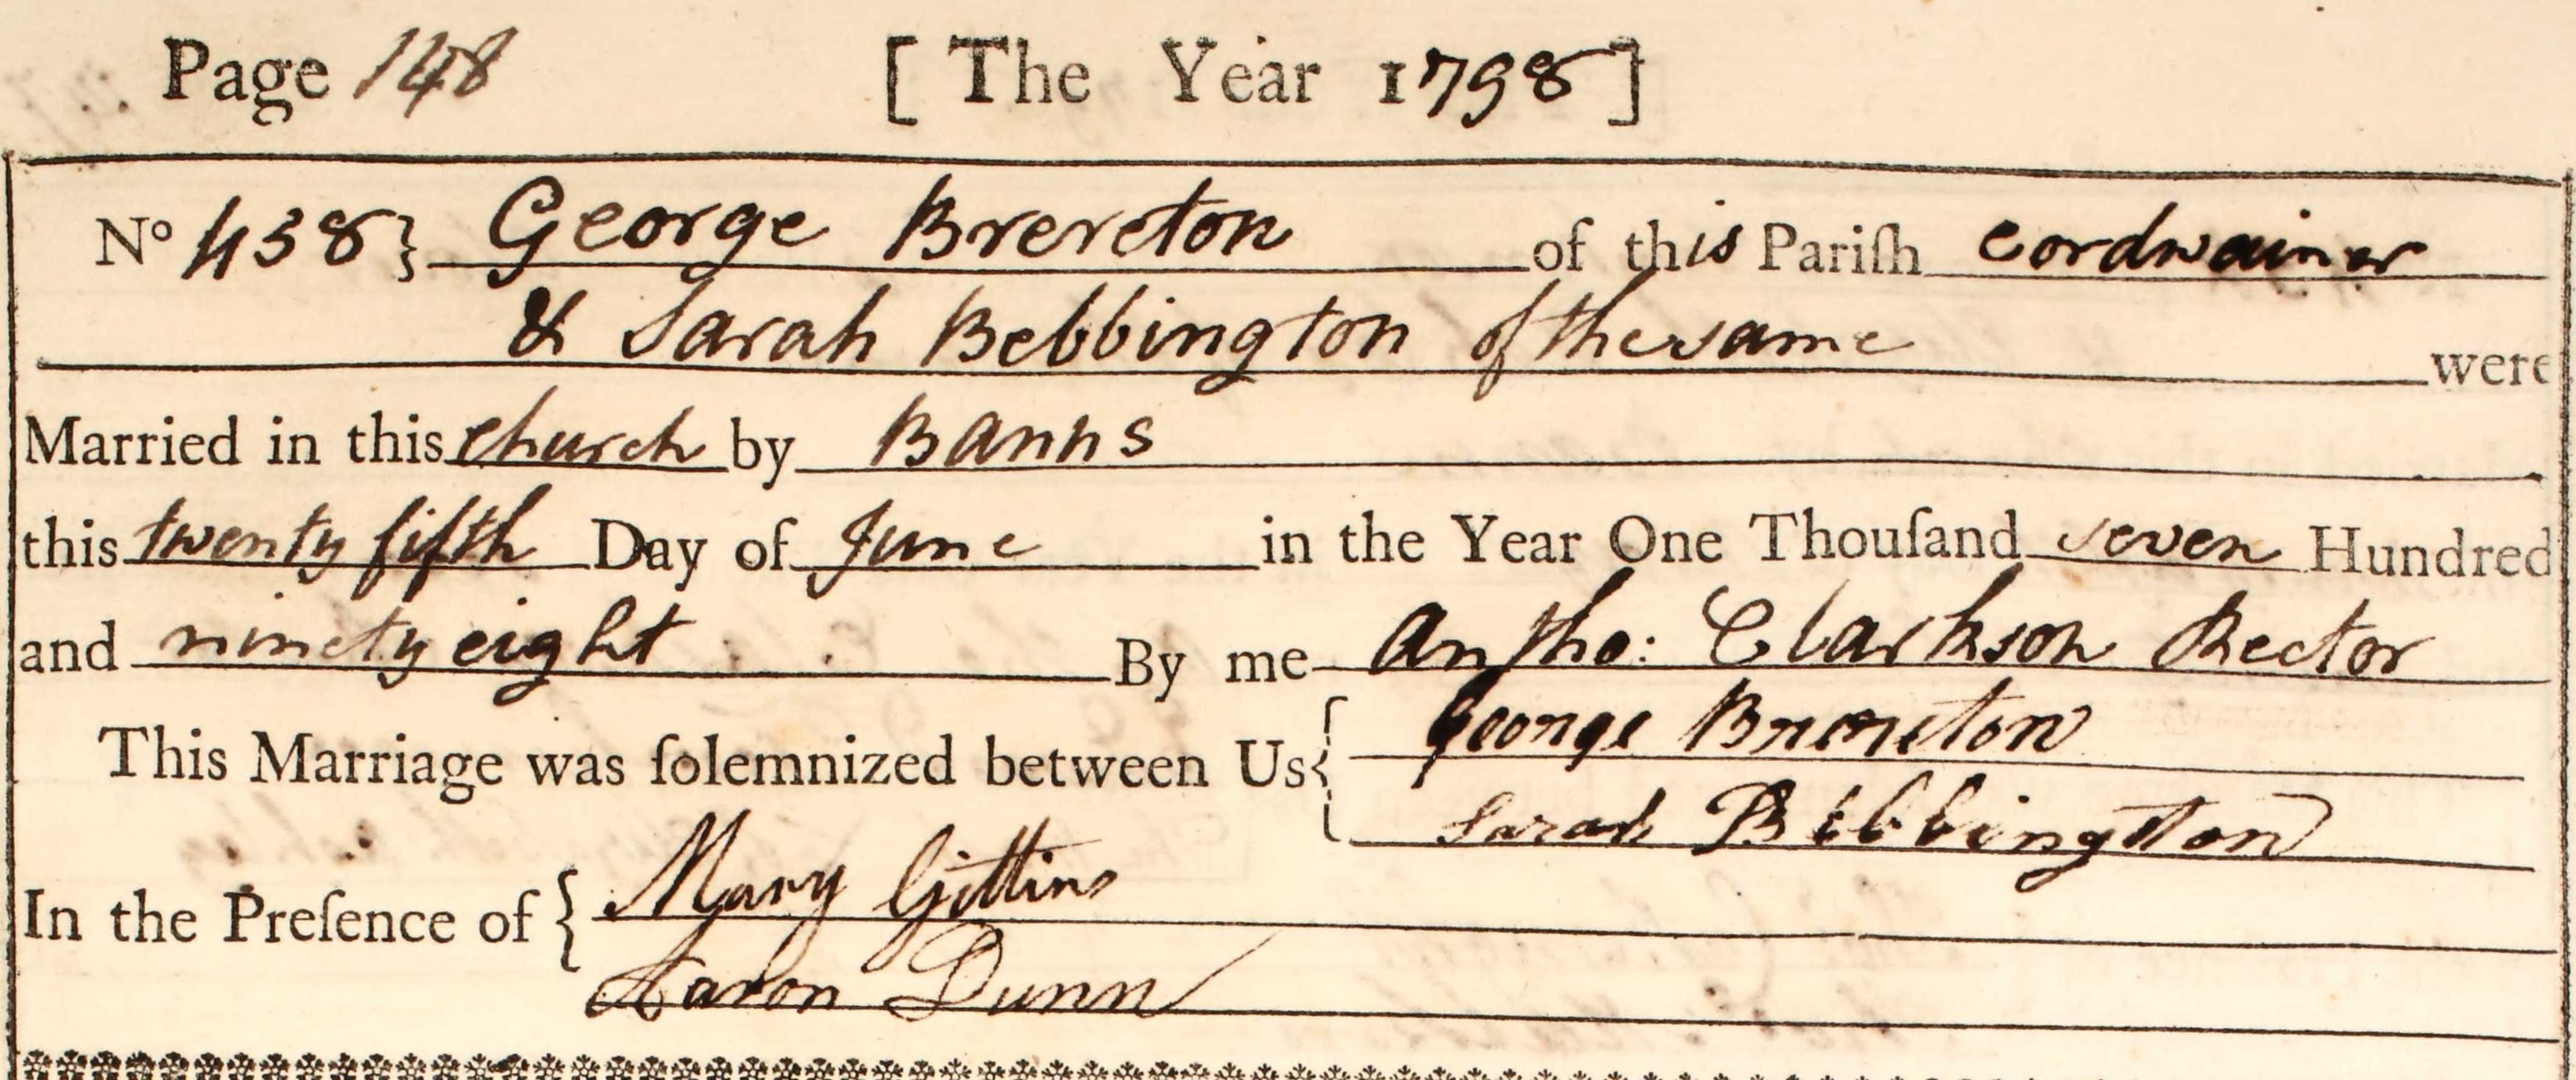 Page 148 [ The Year 1798 ]
No 438} George Brereton of this Pariſh cordwainer
& Sarah Bebbington of the same were
Married in this church by Banns
this twenty fifth Day of June in the Year One Thouſand seven Hundred
and ninety eight By me Antho: Clarkson Rector
This Marriage was ſolemnized between Us { George Brereton
Sarah Bebbington
In the Preſence of { Mary Gittins
Aaron Dunn